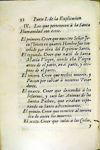 32 Parte I. de la Explicacion
Los que pertenecen à la Santa
Humanidad son estos.
El primero, Creer que nuestro Señor Je-
en quanto Hombre fue con-
por obra del Espiritu Santo.
El segundo, Creer que nació de Santa
Maria Virgen, siendo ella Virgen
antes de el parto, en el parto, y des-
pues de el parto.
El tercero, Creer que recibió
muerte, y passion, por salvar à
nosotros pecadores.
El quarto, Creer que descendió à los
Infiernos, y sacó las Animas de los
Santos Padres, que estaban espe-
rando su santo advenimiento.
El quinto, Creer que resucitó al ter-